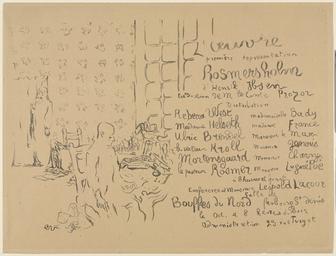 L'œuvre
première représentation
Rosmersholm
d'Henrik Ibsen
traduction de M. le Comte Prozor
Distribution
Rebecca West mademoiselle Bady
Madame Helseth madame France
Ulric Brendel Monsieur
le recteur Kroll Monsieur
Mortensgaard Monsieur Charny
le pasteur Rosmer Monsieur Lugné Poe
Conférence de Monsieur Léopold Lacour
Salle des
Bouffes du Nord Faubourg St Denis
le Oct. à 8 heures
Administration 23 rue Turgot